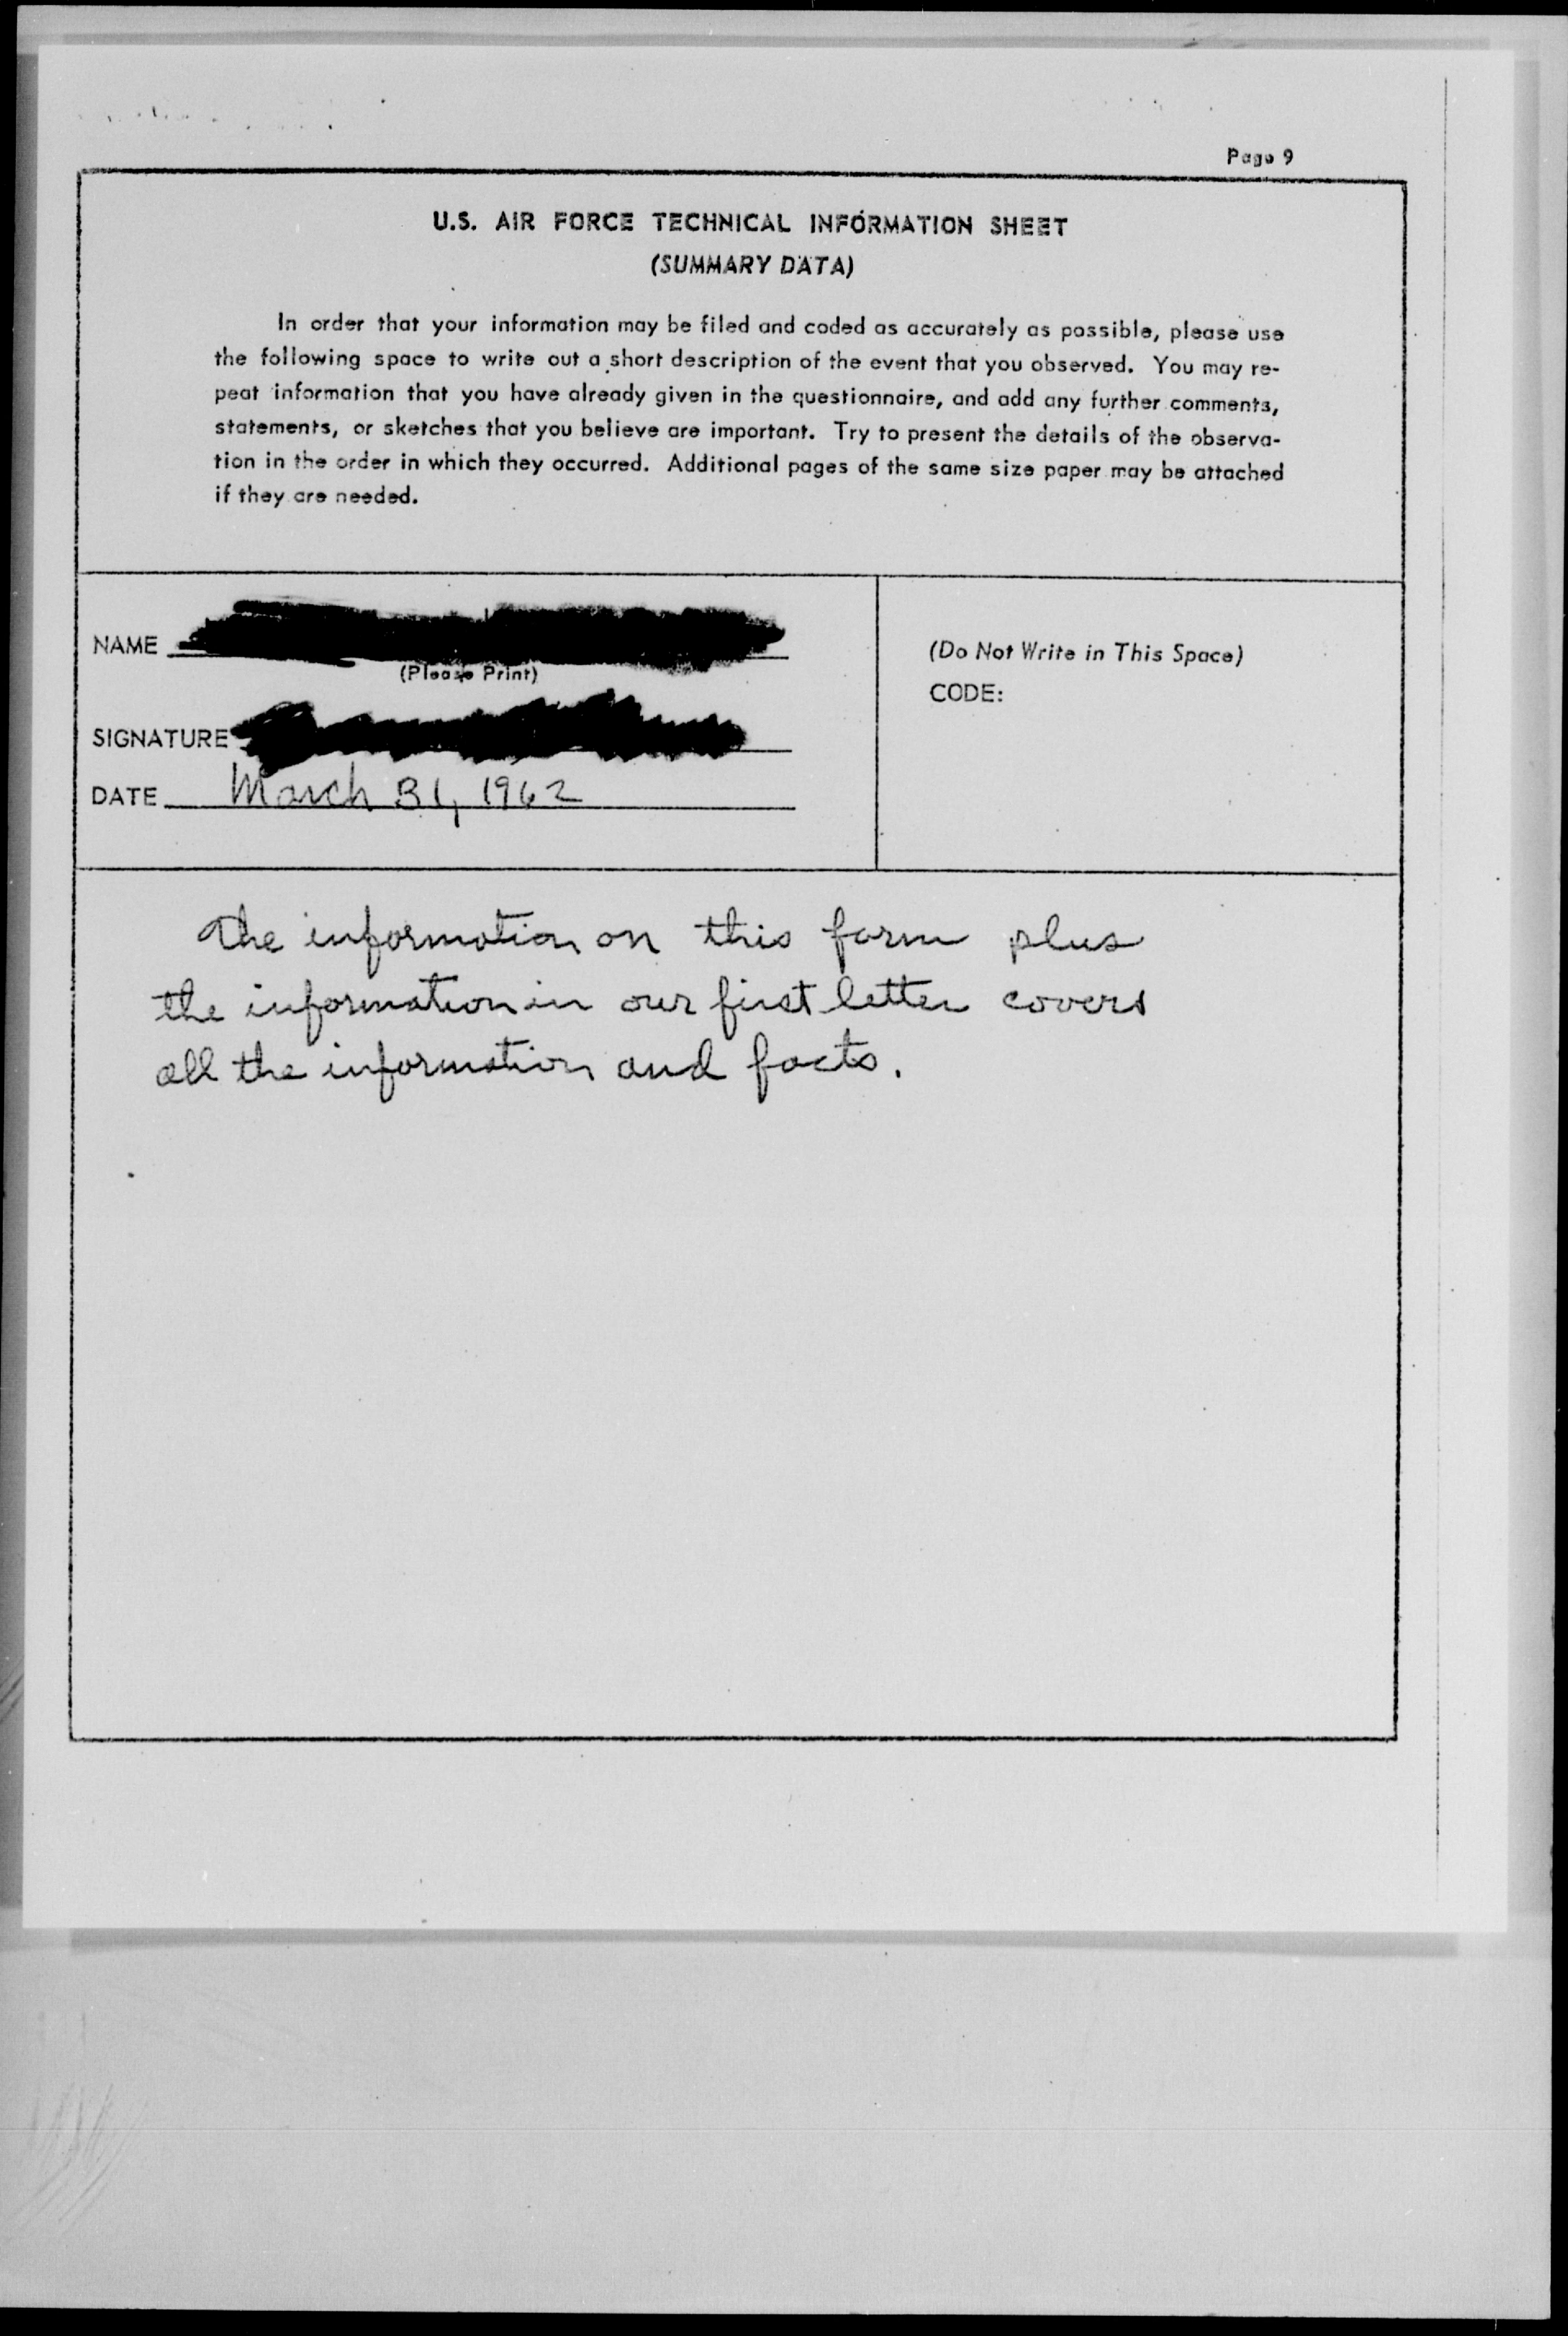 Page 9
U.S. AIR FORCE TECHNICAL INFORMATION SHEET
(SUMMARY DATA)
In order that your information may be filed and coded as accurately as possible, please use
the following space to write out a short description of the event that you observed. You may re-
peat information that you have already given in the questionnaire, and add any further comments,
statements, or sketches that you believe are important. Try to present the details of the observa-
tion in the order in which they occurred. Additional pages of the same size paper may be attached
if they are needed.
NAME
(Please Print)
SIGNATURE
DATE March 31, 1962
(Do Not Write in This Space)
CODE:
The information on this form plus
the information in our first letter covers
all the information and facts.